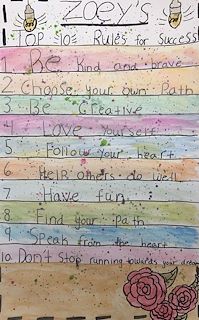 Zoey's
TOP 10 Rules for Success
1. Be Kind and brave
2. Choose your own Path
3 Be Creative
4 Love Yourself
5 Follow your heart
6 Help others do well
7 Have fun
8 Find your Path
9 Speak from the heart
10 Don't Stop running towards your dream